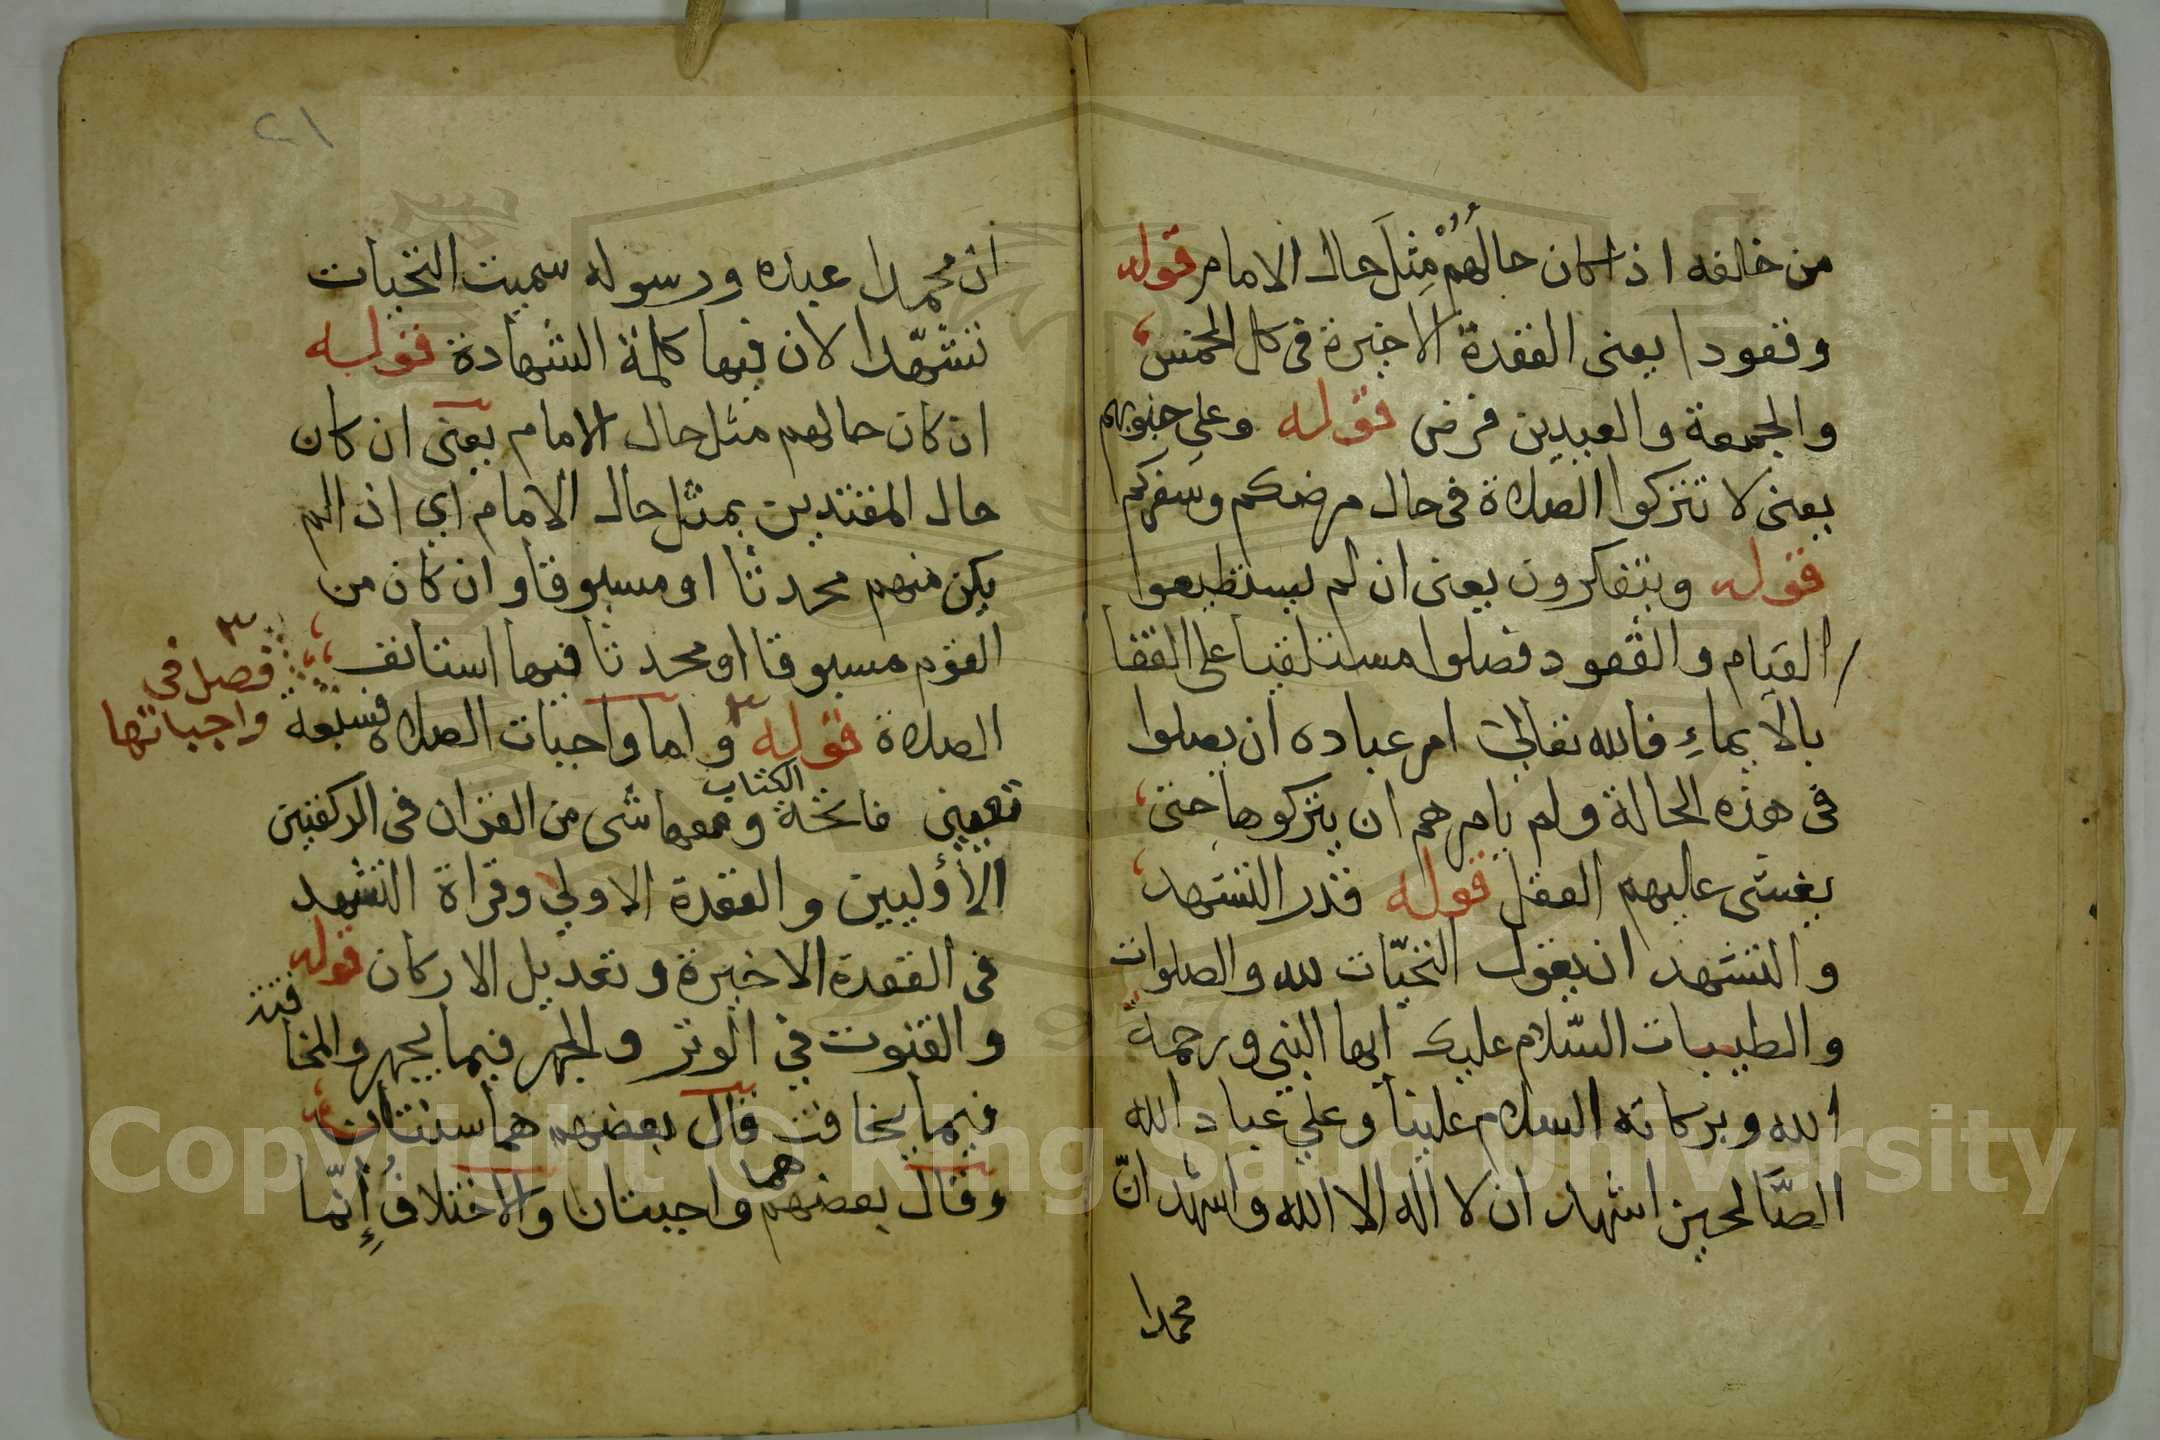 من خالفه اذا كان حالُهُمْ مِثلَ حال الامام قوله
وقعودا يعنى القعدة الاخيرة فى كل الخمس
والجمعة والعيدين فرض قوله وعلى جنوبهم
يعنى لا تتركوا الصلاة فى حال مرضكم وسفركم
قوله ويتفكرون يعنى ان لم يستطيعوا
القيام والقعود فصلوا مستلقيا على القفا
بالايماءِ فالله تعالى امر عباده ان يصلوا
فى هذه الحالة ولم يامرهم ان يتركوها حتى
يغشى عليهم العقل قوله قدر التشهد
والتشهد ان يقول التحيّات لله والصلوات
والطيبات السّلام عليك ايها النبى ورحمةُ
الله وبركاته السلام علينا وعلي عباد الله
الصَّالحين اشهد ان لا اله الا الله واشهد انّ
محمدا
٢١
ان محمدا عبده ورسوله سميت التحيات
تشهّدا لان فيها كلمة الشهادة قوله
ان كان حالهم مثل حال الامام يعنى ان كان
حال المقتدين بمثل حال الامام اي اذا لم
يكن منهم محدثا او مسبوقا وان كان من
القوم مسبوقا او محدثا فيها استانف
الصلاة قوله واما واجبات الصلاة فسبعة
فصل فى
واجباتها
تعيين فاتحة الكتاب ومعها شى من القران فى الركعتين
الاُوليين والقعدة الاولي وقراة التشهد
فى القعدة الاخيرة وتعديل الاركان قوله
والقنوت في الوتر والجهر فيما يجهر والمخافتة
فيما يخافت قال بعضهم هما سنتان
وقال بعضهم هما واجبتان والاختلافُ إِنّما
Copyright © King Saud University